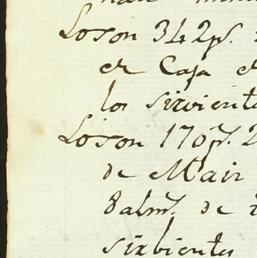 Loson 342ps.
en Caja e
los sirviente
Loson 170ps. 2
de Maiz
8 alms. de
sirvientes